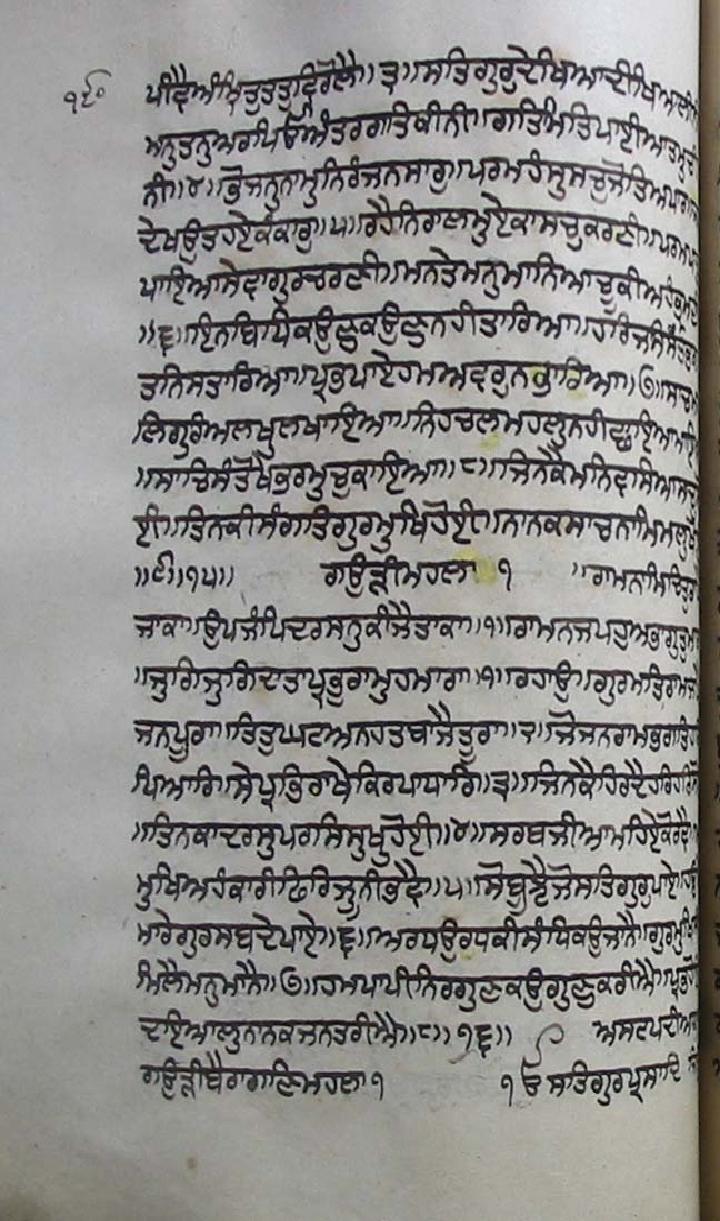 ੧੮੦
ਪੀਵੈਅੰਮ੍ਰਿਤੁਤਤੁਵਿਰੋਲੈ॥੩॥ਸਤਿਗੁਰੁਦੇਖਿਆਦੀਖਿਆਲੀਨੀ
ਮਨੁਤਨੁਅਰਪਿਓਅੰਤਰਗਤਿਕੀਨੀ॥ਗਤਿਮਿਤਿਪਾਈਆਤਮੁਚੀ
ਨੀ॥੪॥ਭੋਜਨੁਨਾਮੁਨਿਰੰਜਨਸਾਰੁ॥ਪਰਮਹੰਸੁਸਚੁਜੋਤਿਅਪਾਰ
ਦੇਖਉਤਹਏਕੰਕਾਰੁ॥੫॥ਰਹੈਨਿਰਾਲਮੁਏਕਾਸਚੁਕਰਣੀ॥ਪਰਮਪਦੁ
ਪਾਇਆਸੇਵਾਗੁਰਚਰਣੀ॥ਮਨਤੇਮਨੁਮਾਨਿਆਚੂਕੀਅਹੰਭ੍ਰਮਣੀ
॥੬॥ਇਨਬਿਧਿਕਉਣੁਕਉਣੁਨਹੀਤਾਰਿਆ॥ਹਰਿਜਸਿਸੰਤਭਗ
ਤਨਿਸਤਾਰਿਆ॥ਪ੍ਰਭਪਾਏਹਮਅਵਰੁਨਭਾਰਿਆ॥੭॥ਸਾਚਮ
ਲਿਗੁਰਿਅਲਖੁਲਖਾਇਆ॥ਨਿਹਚਲਮਹਲੁਨਹੀਛਾਇਆਮਾਇਆ
॥ਸਾਚਿਸੰਤੋਖੇਭਰਮੁਚੁਕਾਇਆ॥੮॥ਜਿਨਕੈਮਨਿਵਸਿਆਸਚੁ
ਈ॥ਤਿਨਕੀਸੰਗਤਿਗੁਰਮੁਖਿਹੋਈ॥ਨਾਨਕਸਾਚਨਾਮਿਮਲੁਖੋਈ
॥੯॥੧੫॥ ਗਉੜੀਮਹਲਾ ੧ ॥ਰਾਮਨਾਮਿਚਿਤੁਰਾ
ਜਾਕਾ॥ਉਪਜੰਪਿਦਰਸਨੁਕੀਜੈਤਾਕਾ॥੧॥ਰਾਮਨਜਪਹੁਅਭਾਗੁਤੁਮਾ
॥ਜੁਗਿਜੁਗਿਦਾਤਾਪ੍ਰਭੁਰਾਮੁਹਮਾਰਾ॥੧॥ਰਹਾਉ॥ਗੁਰਮਤਿਰਾਮਜਪੈ
ਜਨਪੂਰਾ॥ਤਿਤੁਘਟਅਨਹਤਬਾਜੈਤੂਰਾ॥੨॥ਜੋਜਨਰਾਮਭਗਤਿਹਰਿ
ਪਿਆਰਿ॥ਸੇਪ੍ਰਭਿਰਾਖੇਕਿਰਪਾਧਾਰਿ॥੩॥ਜਿਨਕੈਹਿਰਦੈਹਰਿਹਰਿ
॥ਤਿਨਕਾਦਰਸੁਪਰਸਿਸੁਖੁਹੋਈ॥੪॥ਸਰਬਜੀਆਮਹਿਏਕੋਰਵੈ
ਮੁਖਿਅਹੰਕਾਰੀਫਿਰਿਜੂਨੀਭਵੈ॥੫॥ਸੋਬੂਝੈਜੋਸਤਿਗੁਰੁਪਾਏਹਉ
ਮਾਰੇਗੁਰਸਬਦੇਪਾਏ॥੬॥ਅਰਧਉਰਧਕੀਸੰਧਿਕਉਜਾਨੈ॥ਗੁਰਮੁਖਿ
ਮਿਲੈਮਨੁਮਾਨੈ॥੭॥ਹਮਪਾਪੀਨਿਰਗੁਣਕਉਗੁਣੁਕਰੀਐ॥ਪ੍ਰਭਹੋ
ਦਇਆਲੁਨਾਨਕਜਨਤਰੀਐ॥੮॥੧੬॥ ਅਸਟਪਦੀਆ
ਗਉੜੀਬੈਰਾਗਣਿਮਹਲਾ੧ ੧ਓ ਸਤਿਗੁਰਪ੍ਰਸਾਦਿ